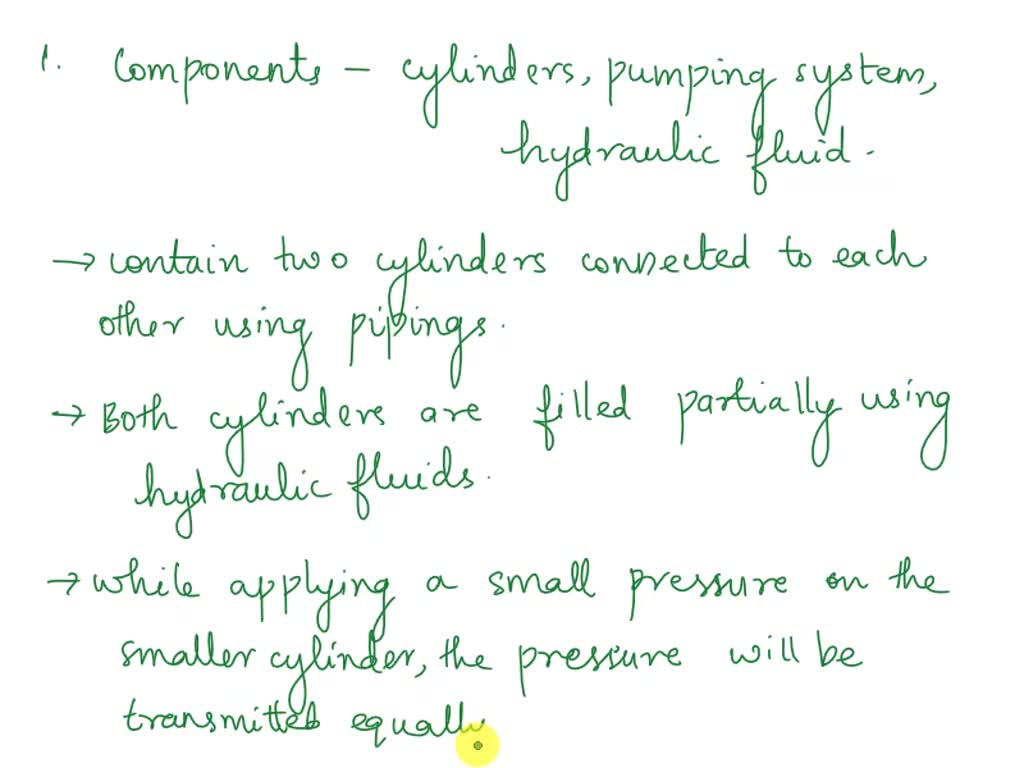 1. Components - cylinders, pumping system,
hydraulic fluid.
→ contain two cylinders connected to each
other using pipings.
→ Both cylinders are filled partially using
hydraulic fluids.
→ while applying a small pressure on the
smaller cylinder, the pressure will be
transmitted equally